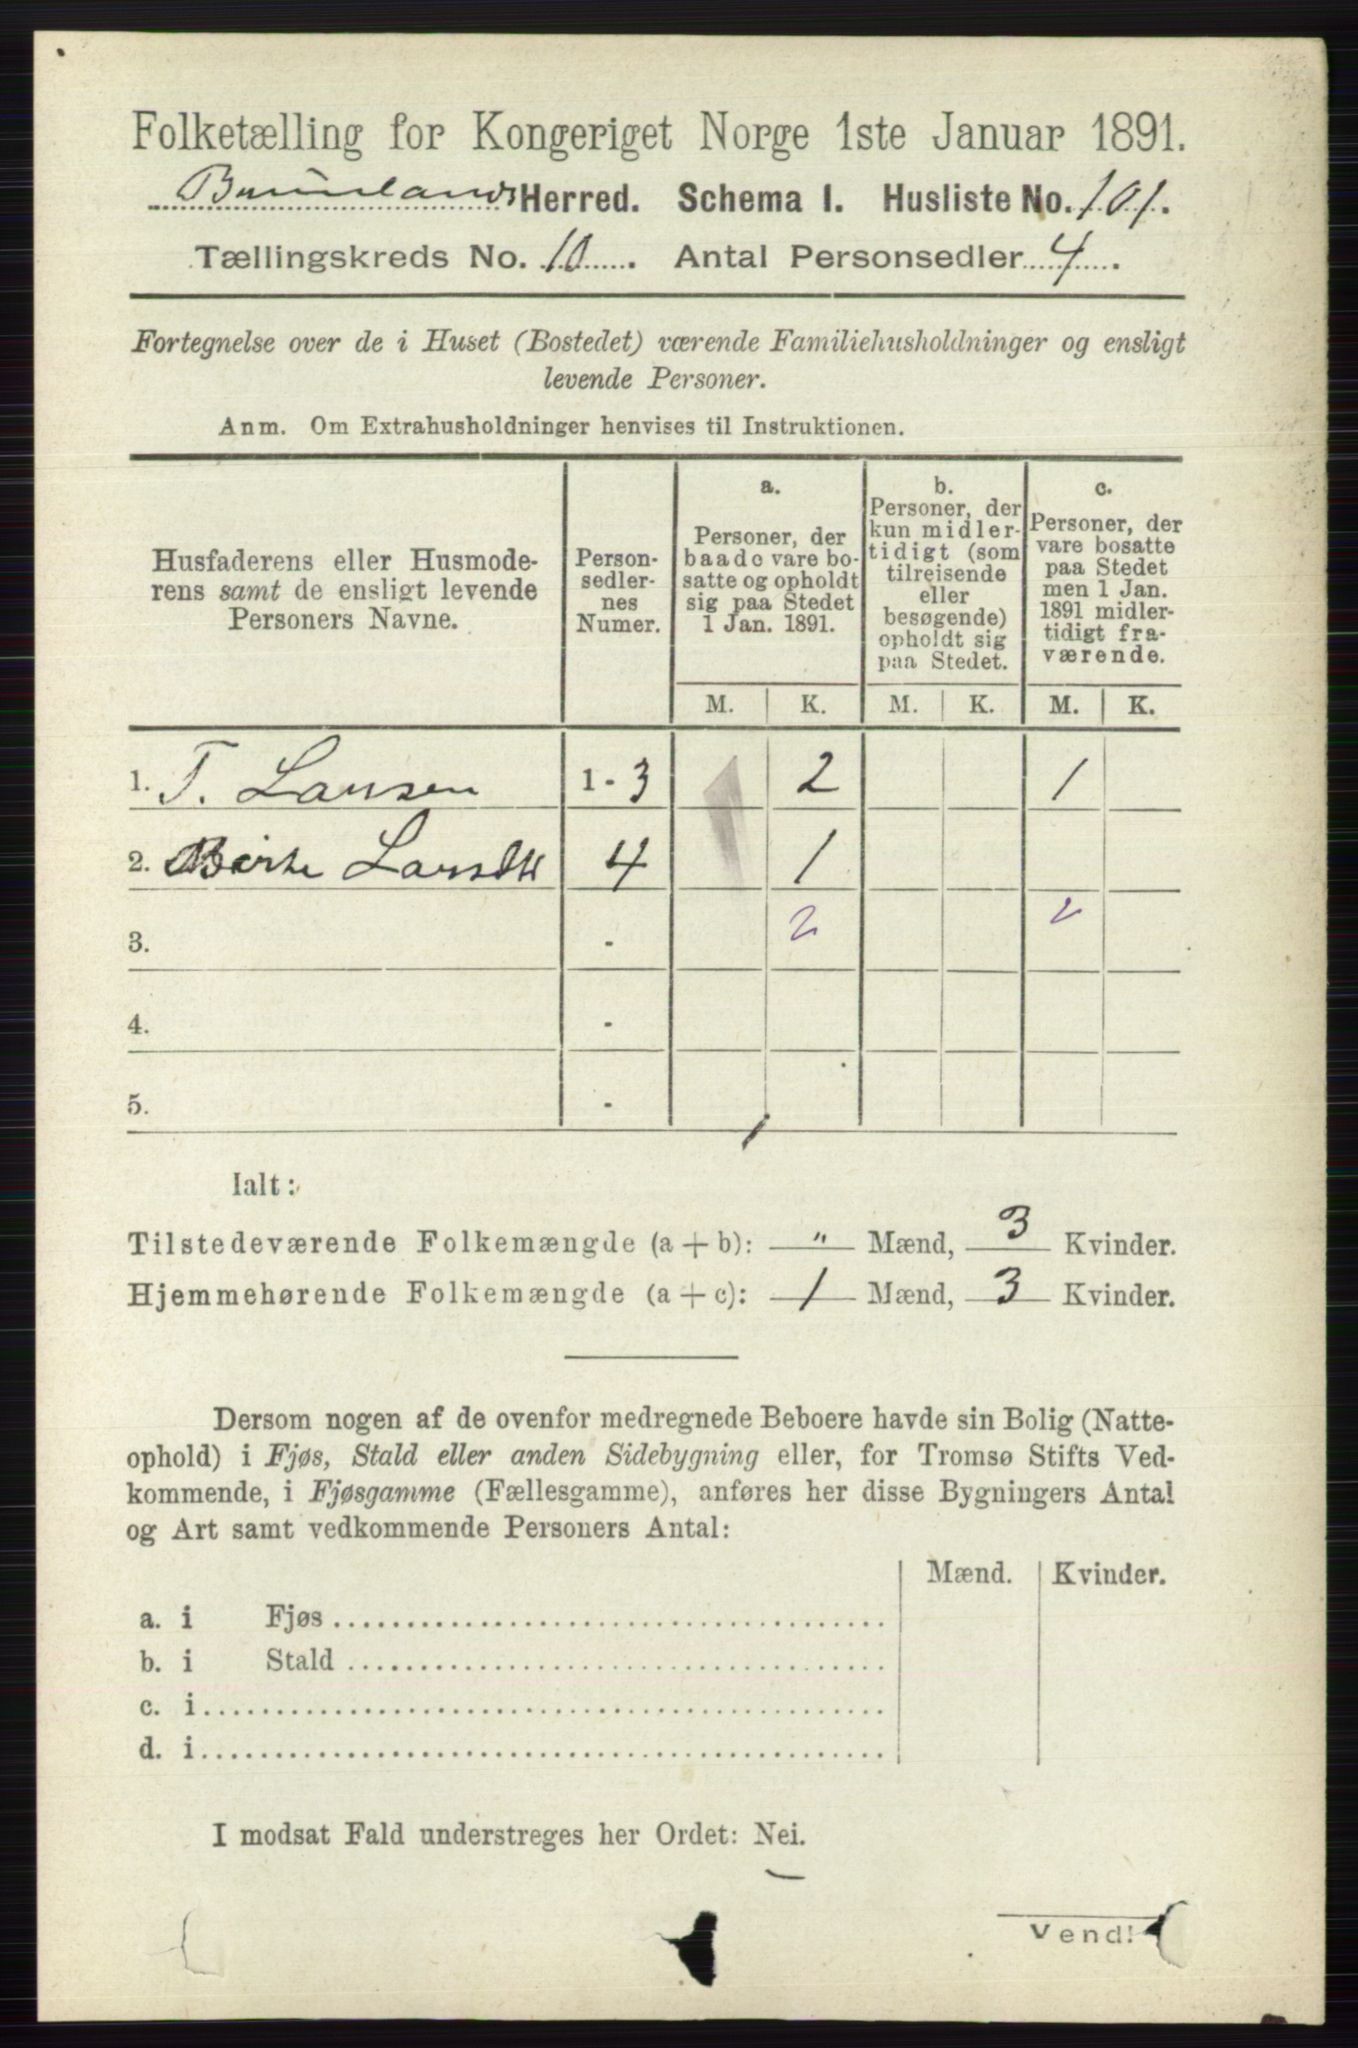 Folketælling for Kongeriget Norge 1ste Januar 1891.
Herred. Schema I. Husliste No. 101.
Tællingskreds No. 10. Antal Personsedler 4.
Fortegnelse over de i Huset (Bostedet) værende Familiehusholdninger og ensligt
levende Personer.
Anm. Om Extrahusholdninger henvises til Instruktionen.
Husfaderens eller Husmode-
rens samt de ensligt levende
Personers Navne.
Person-
sedler-
nes
Numer.
a.
Personer, der
baade vare bo-
satte og opholdt
sig paa Stedet
1 Jan. 1891.
b.
Personer, der
kun midler-
tidigt (som
tilreisende
eller
besøgende)
opholdt sig
paa Stedet.
c.
Personer, der
vare bosatte
paa Stedet
men 1 Jan.
1891 midler-
tidigt fra-
værende.
M. K. M. K. M. K.
1. T. Larsen 1 - 3 2 1
2. Larsdtr 4 1
3. - 2 2
4. -
5. -
Ialt:
Tilstedeværende Folkemængde (a + b): „ Mænd, 3 Kvinder.
Hjemmehørende Folkemængde (a + c): 1 Mænd, 3 Kvinder.
Dersom nogen af de ovenfor medregnede Beboere havde sin Bolig (Natte-
ophold) i Fjøs, Stald eller anden Sidebygning eller, for Tromsø Stifts Ved-
kommende, i Fjøsgamme (Fællesgamme), anføres her disse Bygningers Antal
og Art samt vedkommende Personers Antal:
Mænd. Kvinder.
a. i Fjøs
b. i Stald
c. i
d. i
I modsat Fald understreges her Ordet: Nei.
Vend!